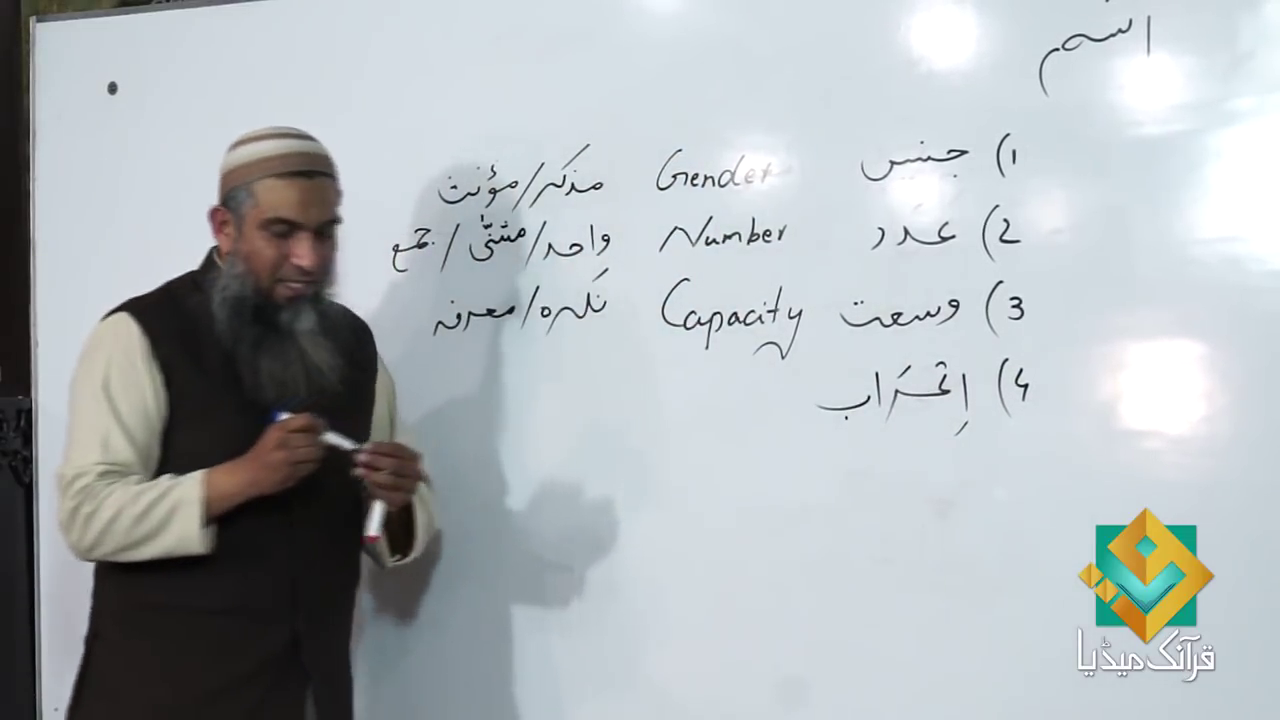 اسم
1) جنس Gender مذکر/مؤنث
2) عَدَد Number واحد/مثنّٰی/جمع
3) وسعت Capacity نَکرہ/معرفہ
4) اِعَراب
قرآنک میڈیا